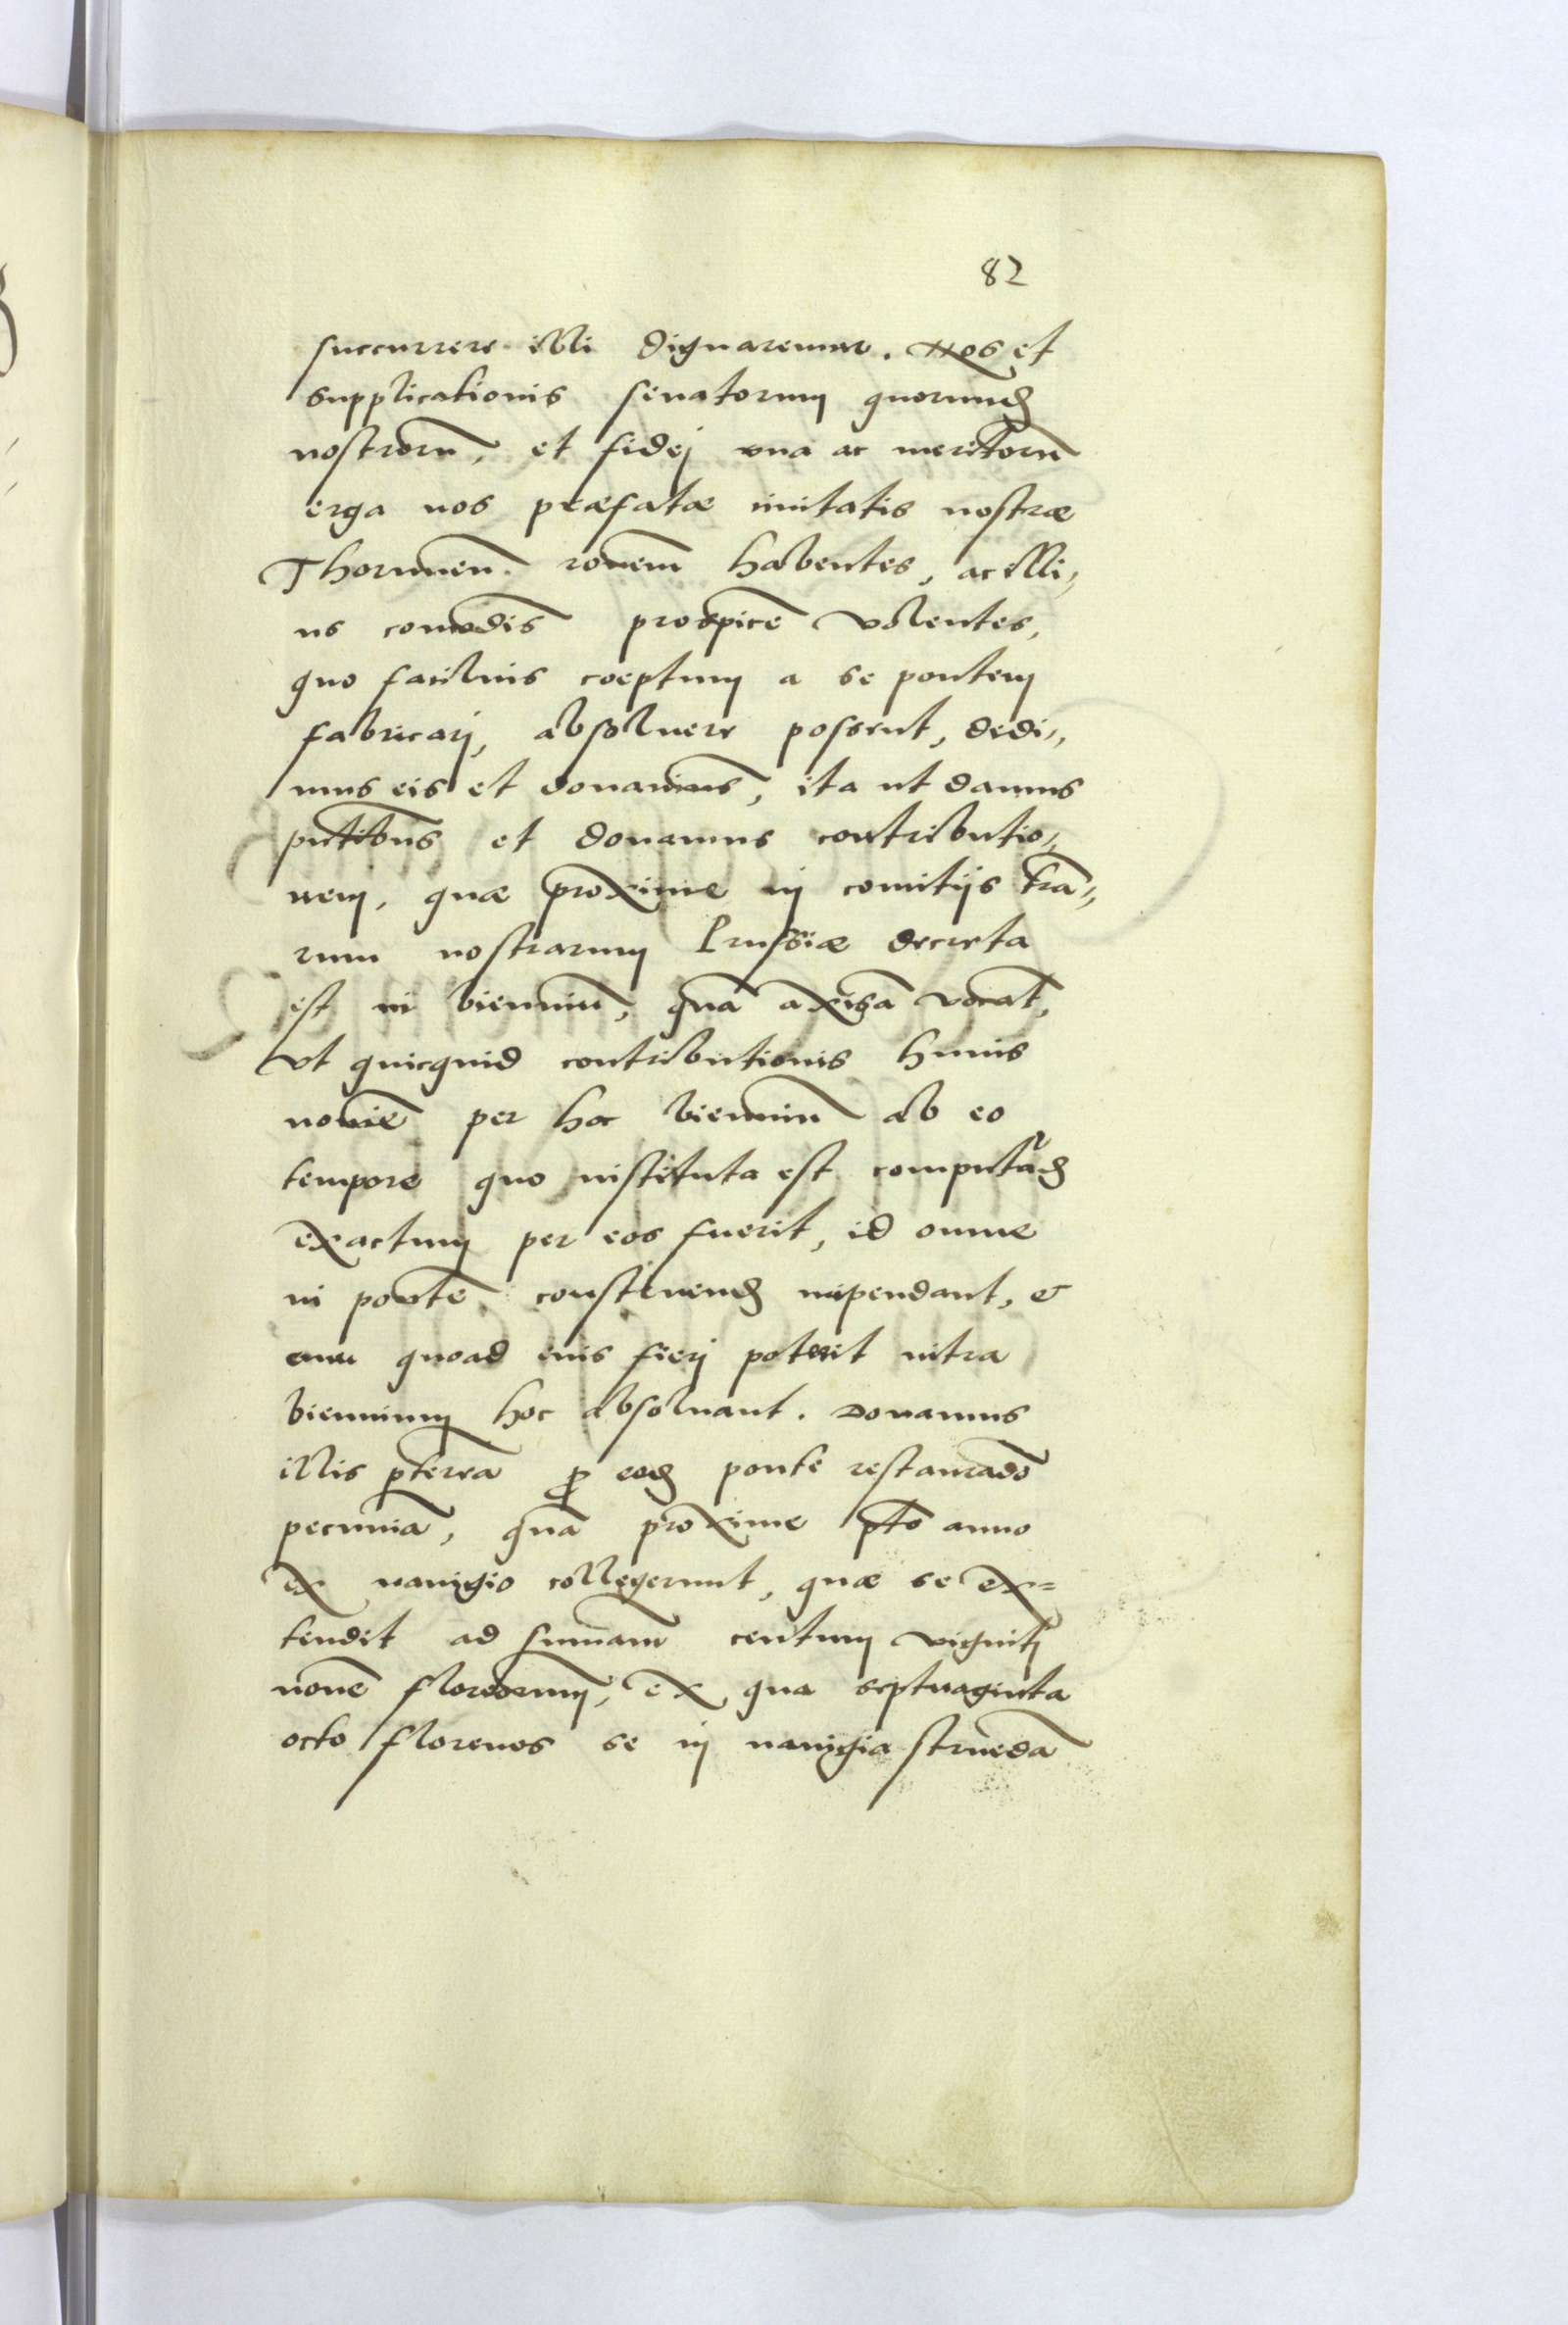 82
succurrere illi dignaremur. Nos et
supplicationis senatorum quorund
nostrorū, et fidej vna ac meritorū
erga nos præfatæ ciuitatis nostræ
Thorunen̄. rōnem habentes, ac illi„
us comōdis prospicē volentes,
quo facilius coeptum a se pontem
fabricarj, absoluere possent, dedi„
mus eis et donauimꝰ, ita ut damus
pn̄tibus et donamus contributio„
nem, quæ proxime in comitijs trā„
rum nostrarum Prussiæ decreta
est in bienniū, quā axisā vocāt,
vt quicquid contributionis huius
nomīe per hoc bienniū ab eo
tempore quo instituta est computād
exactum per eos fuerit, id omne
in pontē construend impendant, &
eum quoad eius fierj poterit intra
biennium hoc absoluant. Donamus
illis p̄terea ꝓ eod ponte restaurādo
pecuniā, quā proxime pn̄to anno
ex nauigio collegerunt, quæ se ex=
tendit ad summam centum vigintj
nouē florenorum, ex qua septuaginta
octo florenos se in nauigia struēda